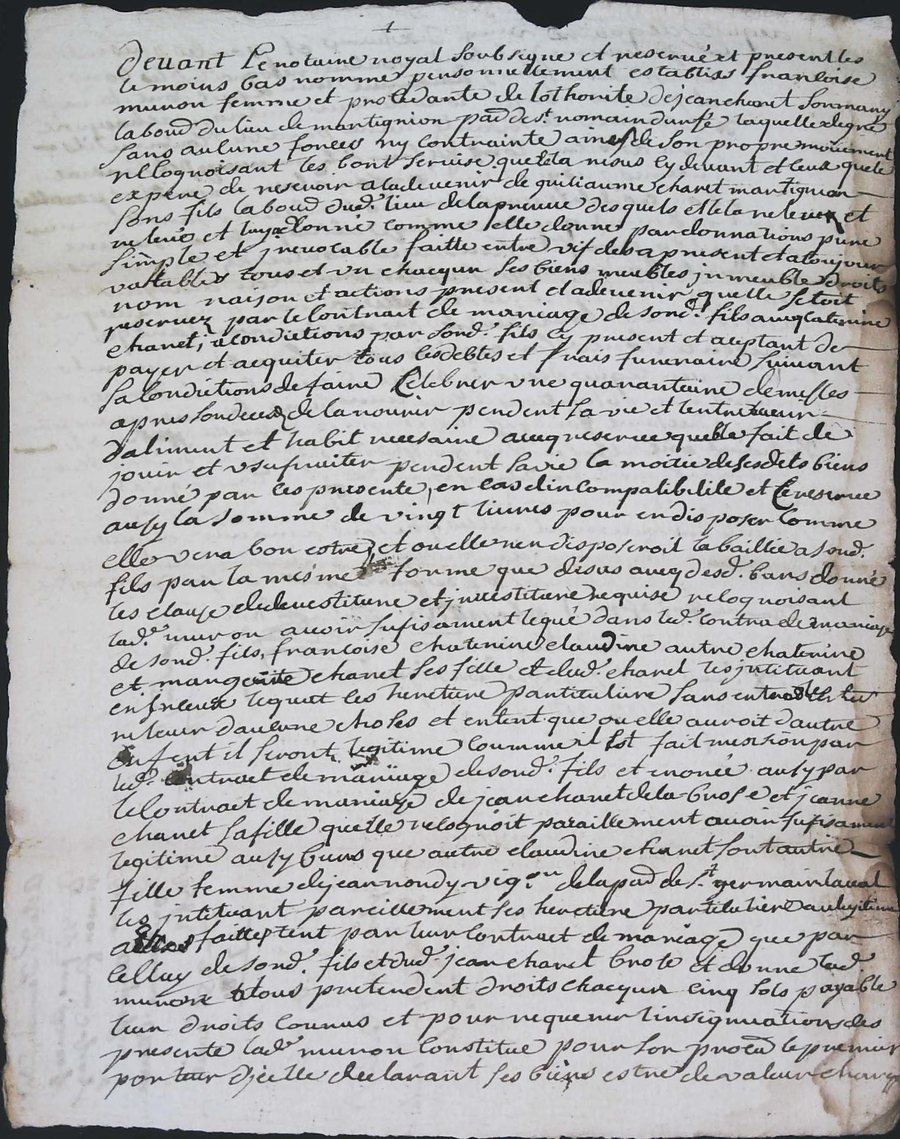 1
devant Le notaire royal soubsigne et reservé et present les
te moins bas nommé personnellement establist francoise
muron femme et procedante de lothorite de jean charet son mary
laboud du lieu de martignion pad de st romain durfé laquelle de gré
sans aulcune forces ny contrainte ains de son propre mouvement
recognoisant les bont servise quelela resus cy devant et ceux quele
espere de resevoir aladevenir de guiliaume charet martignon
sons fils laboud dud. lieu de la preuve desquels elle la releve et
releve et luy a donné comme elle donne par donnations pure
simple et jrevocable faitte entre vif des a present et a toujour
vallable tous et un chacqun ses biens meubles jnmeuble droits
nom raison et actions present et adevenir quelle setoit
reservez par le contrait de mariage de sond. fils avecq caterine
charet, a condictions par sond. fils cy present et aceptant de
payer et acquiter tous ses debtes et frais funeraire suivant
sa condictions de faire Celebrer une quarantaine de messes
apres son deced de la nourir pendent sa vie et lentretenir
daliment et habit necesaire avecq reserve quelle fait de
jouir et usufruiter pendent sa vie la moitie desesdets biens
donné par ces presente, en cas dincompatibilité et Ce reserve
ausy la somme de vingt livres pour en disposer comme
elle vera bon estre, et ou elle nen disposeroit la baillie a sond.
fils par la mesme forme que disus avecq desd. bans donné
les clause de devestiture et jnvestiture requise recognoisant
lad. muron avoir sufisament legué dans led. contra de mariage
de sond. fils, francoise chaterine claudine autre chaterine
et marguerite charet ses fille et dud. charet les jntituant
en jceux leguat ses heretiere particuliere sans entre
releur daulcune choses et entent que ou elle auroit dautre
enfent il seront legitime coumme il est fait mension par
led. contract de mariage de sond. fils et enoné ausy par
le contrait de mariage de jean charet de la brose et jeanne
charet sa fille quelle recognoit paraillement avoir sufisament
legitime ausy biens que autre claudine charet son autre
fille femme de jean nondy vigon de la pad de st germain laval
les jntituant pareillement ses heretiere particuliere au legitime
a elles faittes tent par leur contract de mariage que par
celluy de sond. fils et dud. jean charet brose et donne lad.
muron a tous pretendent droits chacqun cinq sols payable
leur droits connus et pour requerir linsignuations des
presente lad. muron constitue pour son procu le premier
porteur djcelle declarant ses biens estre de valeur charge